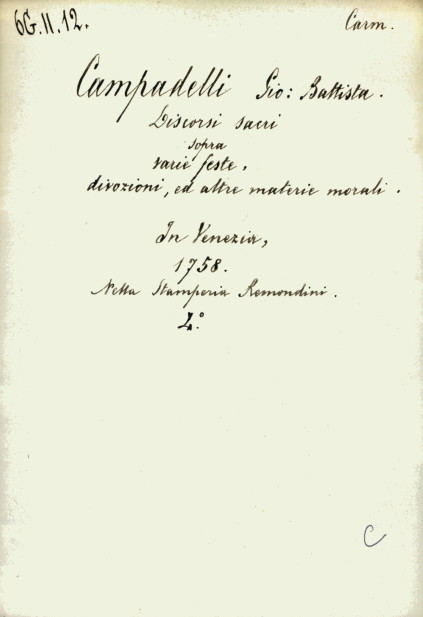 6G.II.12.
Carm.
Campadelli Gio: Battista.
Discorsi sacri
sopra
varie feste,
divozioni, ed altre materie morali.
In Venezia,
1758.
Nella Stamperia Remondini.
4.º
C